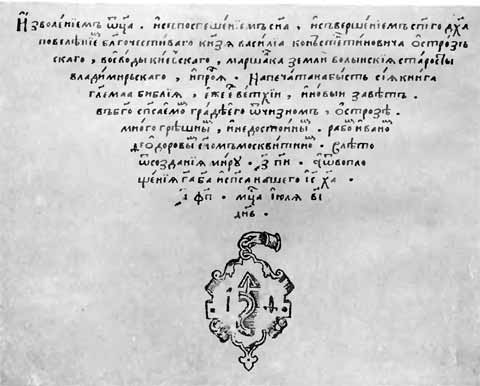 И҆зволе́нїемъ ѿц҃а . и҆съпоспеше́нїемъ сн҃а , и҆съвершенїемъ ст҃го дх҃а
повелѣ́нїе бл҃гочестиваго кн҃зѧ василїа костѧнтиновича острозъ
скаго , воеводы кїевъскаго , маршалка земли волыньскїѧ ста́росты
владимирьскаго , и҆про́ѧ . Напеча́танабысть сїѧкнига
гл҃емаѧ библїѧ , ветхїи , и҆новыи завѣтъ .
въбг҃оспсаемомъ градѣ его ѿчизномъ , острозѣ .
многогрѣшныи , и҆недостоиныи . рабъ иванъ
ѳеодоровъ сн҃ъ москвитинъ . влѣто
ѿсозданїѧ миру . ҂з пи . аѿвопло
щенїѧ га҃ба҃ и҆сп҃са нашего іс҃ ха҃
҂а фп . мц҃а і҆юлѧ ві
днь .